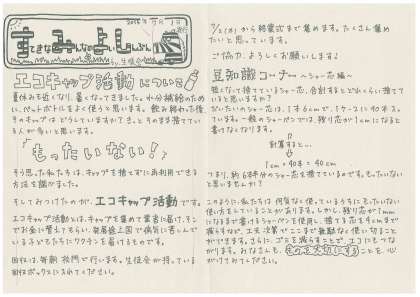 2015年7月1日
すてきなみんなのよいしんぶん
生徒会
エコキャップ活動について
夏休みも近くなり、暑くなってきました。水分補給のため
に、ペットボトルをよく使うと思います。飲み終わった後、
そのキャップはどうしていますか？きっとそのまま捨ててい
る人が多いと思います。
「もったいない！」
そう思った私たちは、キャップを捨てずに再利用できる
方法を調べました。
そしてみつけたのが、エコキャップ活動です。
エコキャップ活動とは、キャップを集めて業者に届け、そこ
でお金に替えてもらい、発展途上国で病気に苦しんで
いる子どもたちにワクチンを届けるものです。
回収は、毎朝、校門で行います。生徒会が持っている
回収ボックスに入れてください。
7/2(木)から終業式まで集めます。たくさん集め
たいと思っています。
ご協力、よろしくお願いします！
豆知識コーナー 〜シャー芯編〜
短くなって捨てているシャー芯、合計するとどれくらい捨てて
いると思いますか？
だいたいのシャー芯は、1本6cmで、1ケースに40本入。
ています。一般のシャーペンでは、残り芯が1cmになると
書けなくなります。
計算すると…
1cm×40本＝40cm
つまり、約6.8本分のシャー芯を捨てているのです。もったいない
と思いませんか？
このように、私たちは何気なく使っているうちに、もったいない
使い方をしていることがあります。しかし、残り芯が1mmに
なるまで書けるシャーペンを使用し、捨てる芯を4cmまで
減らすなど、工夫次第でここまで無駄なく使い切ること
ができます。さらに、ゴミを減らすことで、エコにもつな
がります。みなさんも、ものを大切にすることを、心
がけてみてください。